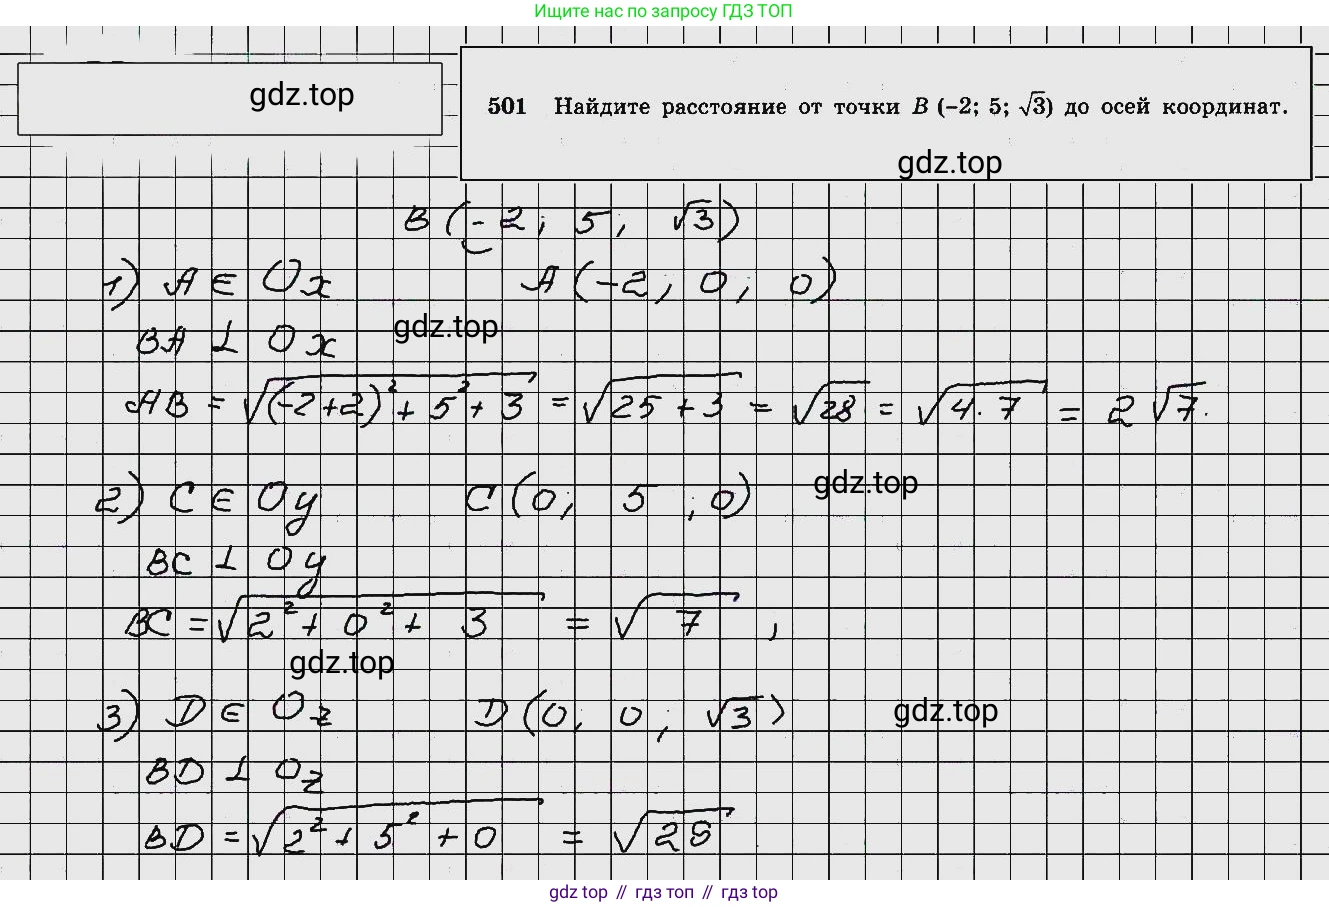 Ищите нас по запросу ГДЗ ТОП
gdz.top
501 Найдите расстояние от точки B (–2; 5; √3) до осей координат.
gdz.top
B (-2; 5; √3)
1) A ∈ Ox A (-2; 0; 0)
BA ⊥ Ox gdz.top
AB = √((-2+2)² + 5² + 3) = √(25 + 3) = √28 = √(4·7) = 2√7.
2) C ∈ Oy C (0; 5; 0) gdz.top
BC ⊥ Oy
BC = √(2² + 0² + 3) = √7,
gdz.top
3) D ∈ Oz D (0; 0; √3) gdz.top
BD ⊥ Oz
BD = √(2² + 5² + 0) = √28
gdz top // гдз топ // гдз top